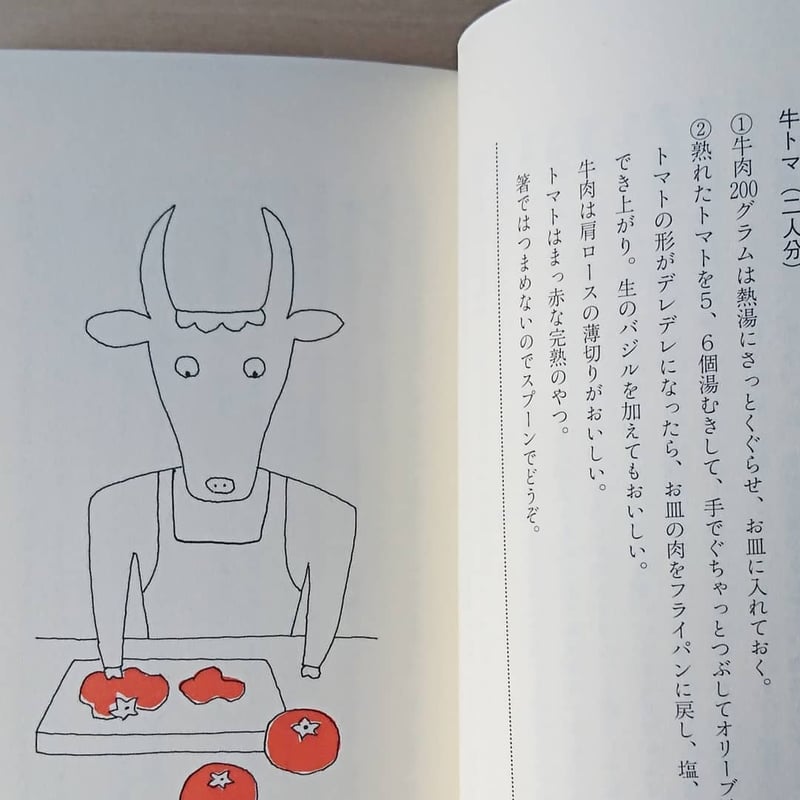 牛トマ（二人分）
①牛肉200グラムは熱湯にさっとくぐらせ、お皿に入れておく。
②熟れたトマトを5、6個湯むきして、手でぐちゃっとつぶしてオリーブ
トマトの形がデレデレになったら、お皿の肉をフライパンに戻し、塩、
でき上がり。生のバジルを加えてもおいしい。
牛肉は肩ロースの薄切りがおいしい。
トマトはまっ赤な完熟のやつ。
箸ではつまめないのでスプーンでどうぞ。